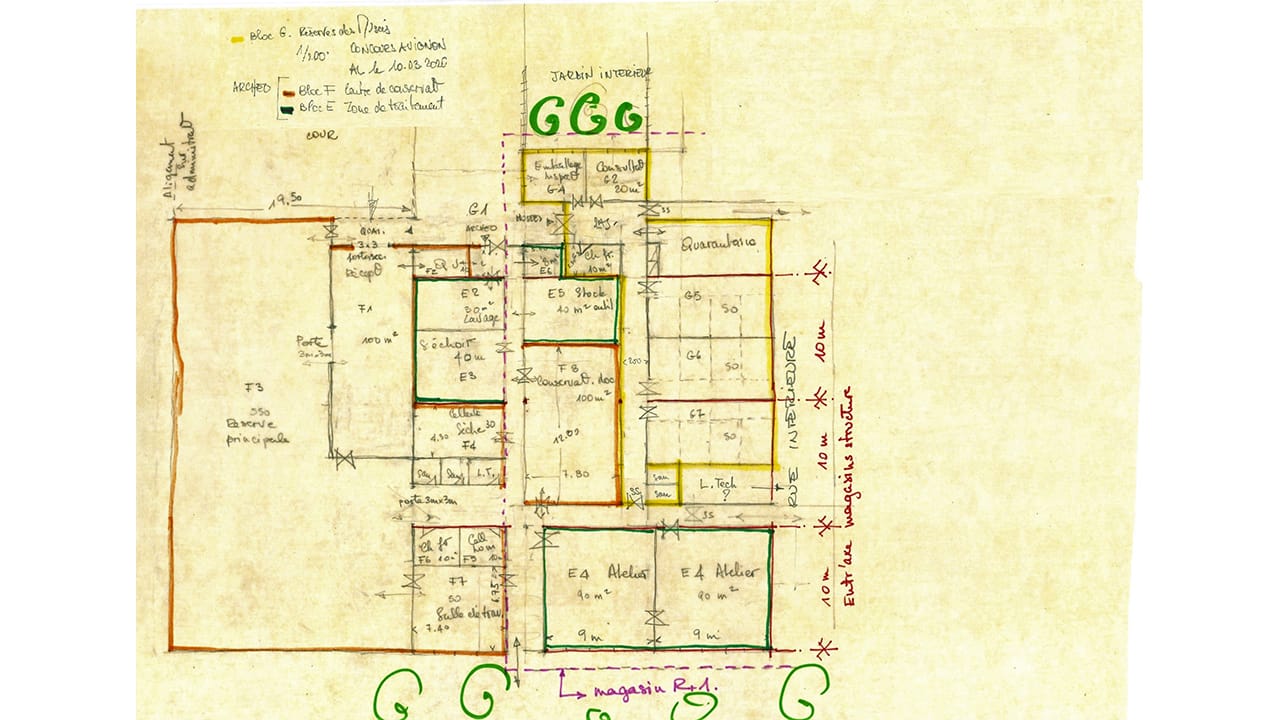 Bloc G. Réserves des Musées
1/200. CONCOURS AVIGNON
AL le 10.03.2026
ARCHEO
Bloc F Centre de conservat
Bloc E Zone de traitement
COUR
JARDIN INTERIEUR
Alignement
administrat
19.50
G1
ARCHEO
Emballage
G4
Consultat
G2
20m²
SAS
3S
QUAI
3x3
Récept
F1
100 m²
Porte
3mx3m
F2
E2
30m²
Lavage
Séchoir
40m
E3
E6
Ch fr.
10m²
E5 Stock
40 m² outil
F8
Conservat. doc
100m²
12.82
7.80
Quarantaine
G5
50
G6
50
G7
50
200
F3
550
Réserve
principale
Sèche 30
4.50
F4
San
San
L.T.
Porte 3mx3m
san
san
L.Tech
?
3S
3S
Ch fr
F6 10m²
F5
F7
50
Salle de trav.
7.40
6.75
E4 Atelier
90 m²
9 m
E4 Atelier
90 m²
9 m
RUE INTERIEURE
10 m
10 m
10 m
Entr'axe magasins structure
magasin R+1.
G G G
G G G